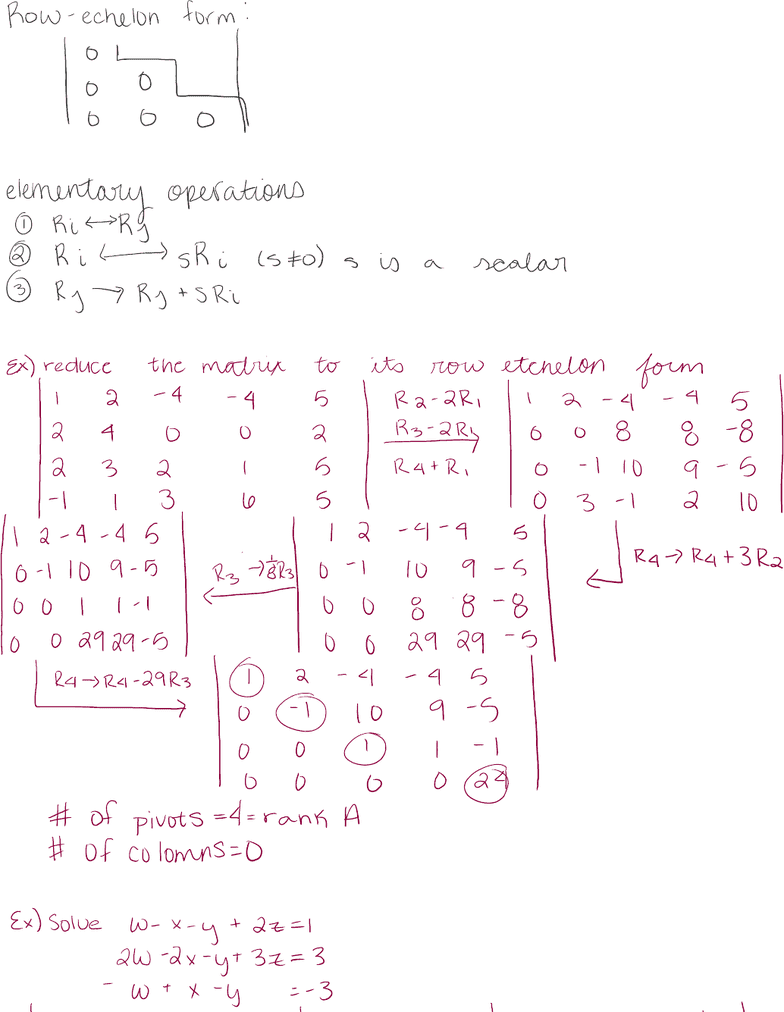 Row-echelon form:
0
0 0
0 0 0
elementary operations
① Ri ↔ Rj
② Ri ↔ sRi (s≠0) s is a scalar
③ Rj → Rj + sRi
Ex) reduce the matrix to its row etchelon form
1 2 -4 -4 5
2 4 0 0 2
2 3 2 1 5
-1 1 3 6 5
R2-2R1
R3-2R1
R4+R1
1 2 -4 -4 5
0 0 8 8 -8
0 -1 10 9 -5
0 3 -1 2 10
R4→R4+3R2
1 2 -4 -4 5
0 -1 10 9 -5
0 0 8 8 -8
0 0 29 29 -5
R3→1/8R3
1 2 -4 -4 5
0 -1 10 9 -5
0 0 1 1 -1
0 0 29 29 -5
R4→R4-29R3
1 2 -4 -4 5
0 -1 10 9 -5
0 0 1 1 -1
0 0 0 0 24
# of pivots =4= rank A
# of colomns=0
Ex) Solve w- x-y + 2z=1
2w -2x -y+ 3z= 3
- w + x -y =-3